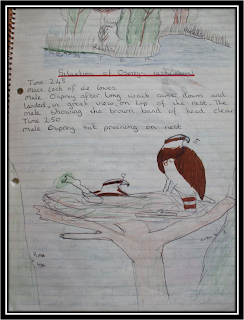 Sighting of Osprey
Time 2.45
Place Loch of the Lowes
Male Osprey after long wait came down and
landed, in great view, on top of the nest. The
male showing the brown band of head clear
Time 2.50
Male Osprey but preening on nest